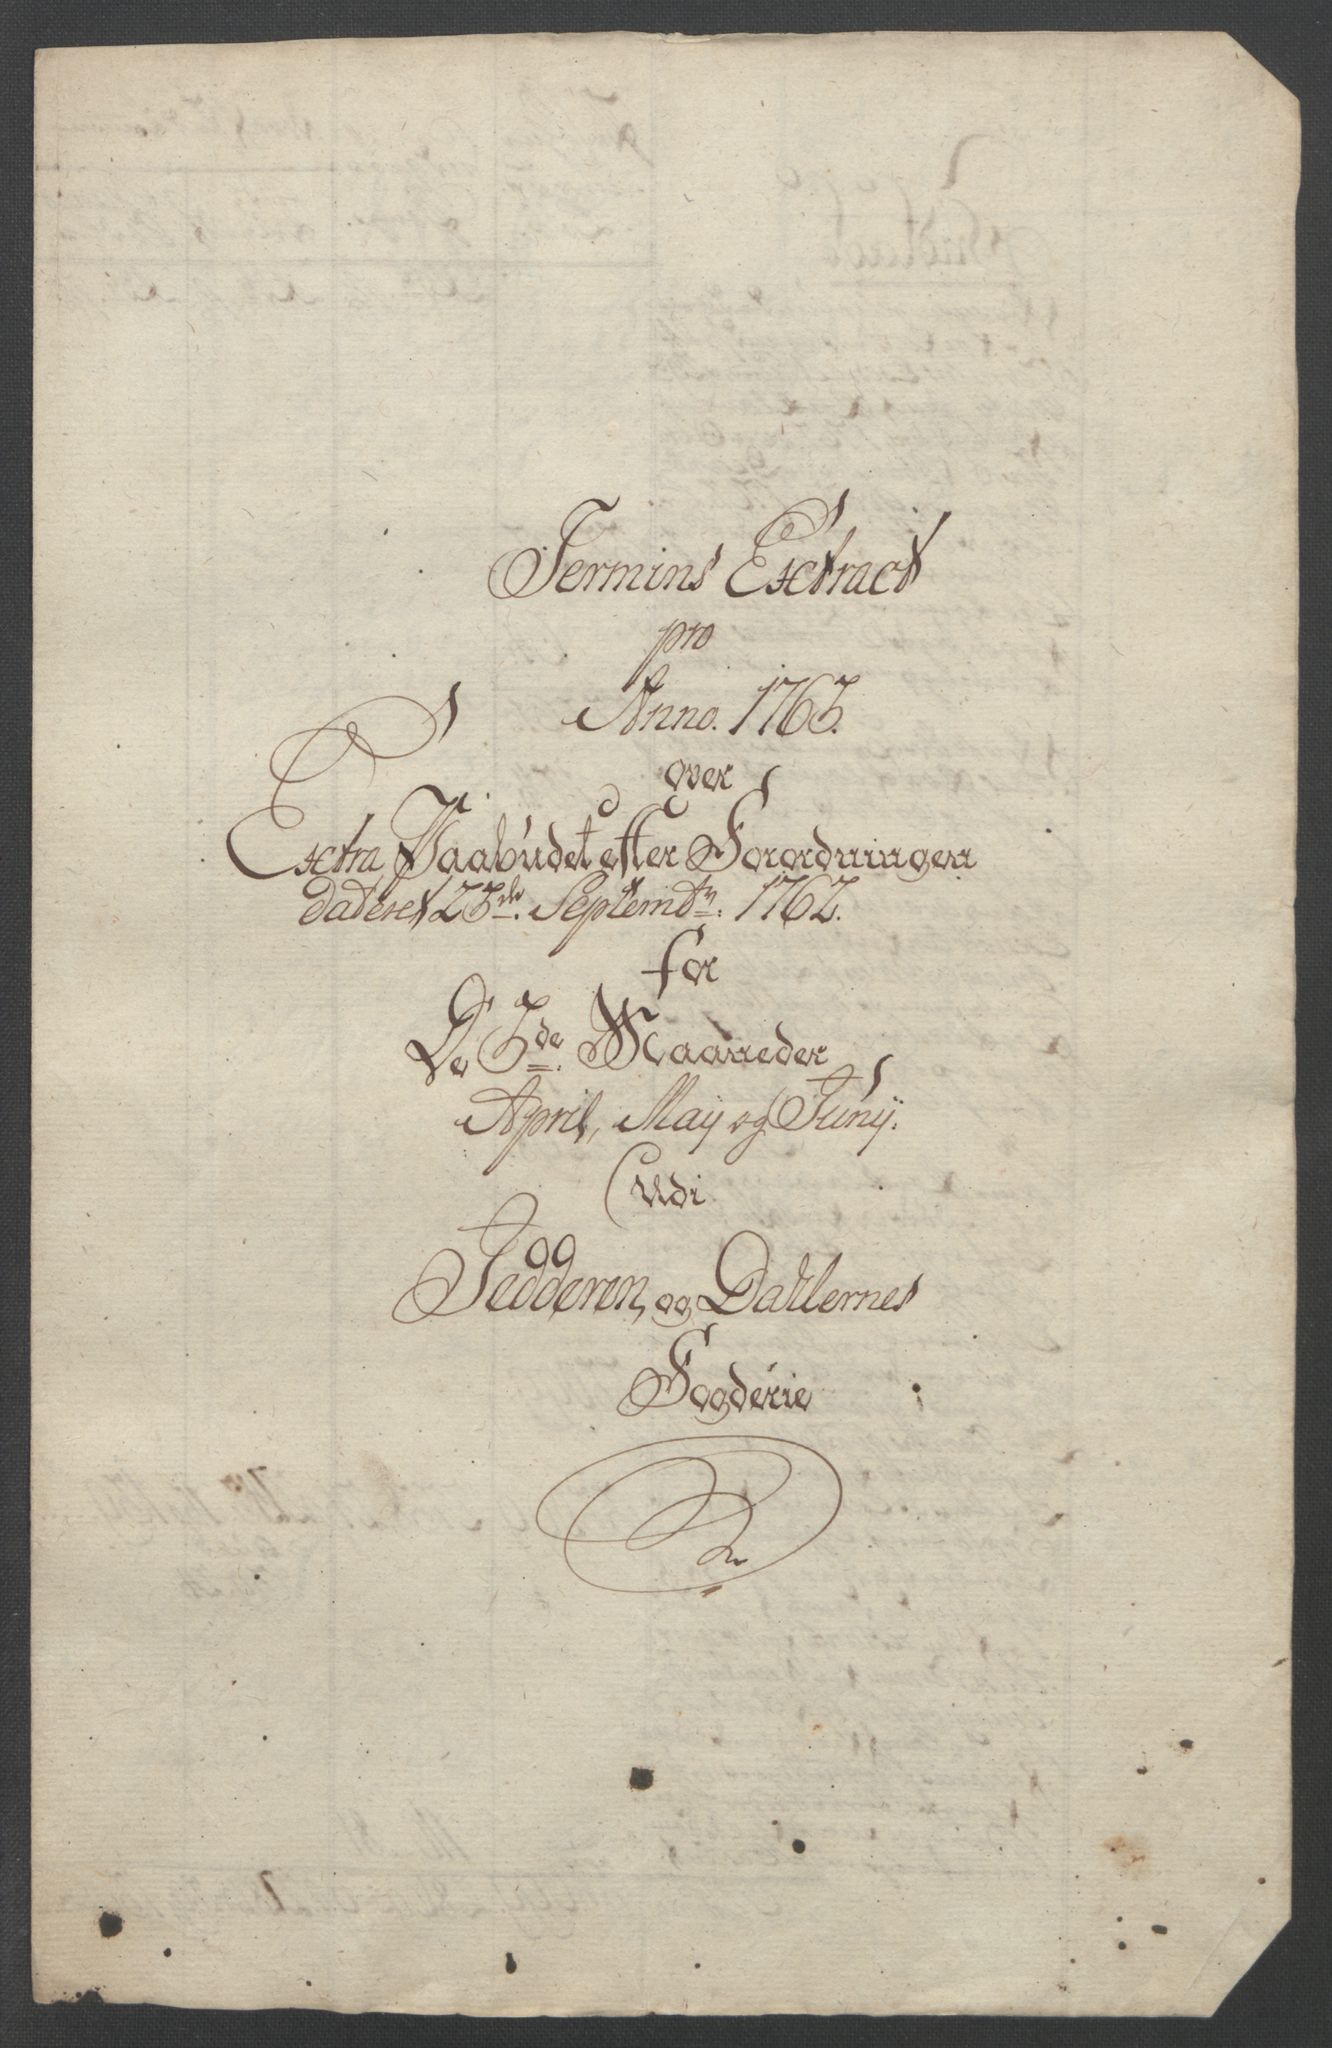 Termins Extract
pro
Anno. 1763.
over
Extra Paabudet efter Forordningen
dateret 23de. Septembr. 1762.
for
De 3de. Maaneder
April, May og Junij.
udi
Jedderen, og Dahlernes
Fogderie